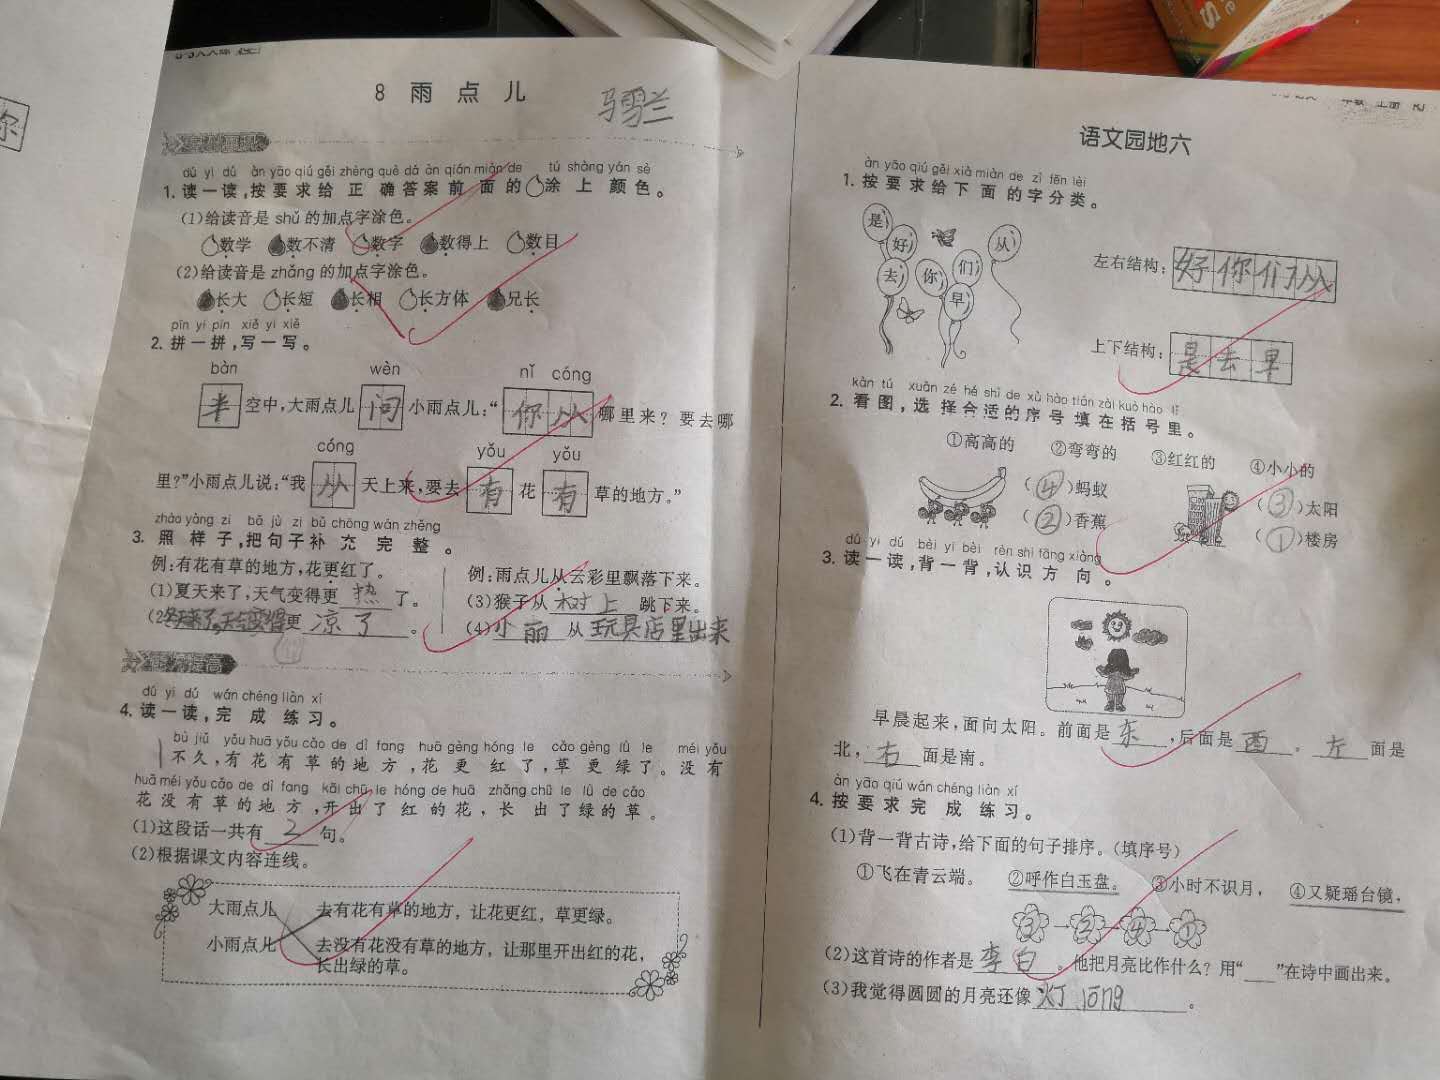 你
8 雨点儿
马雪兰
dú yi dú àn yāo qiú gěi zhèng què dá àn qián miàn de tú shàng yán sè
1. 读一读,按要求给正确答案前面的涂上颜色。
(1)给读音是 shǔ 的加点字涂色。
数学 数不清 数字 数得上 数目
(2)给读音是 zhǎng 的加点字涂色。
长大 长短 长相 长方体 兄长
pīn yi pīn xiě yi xiě
2. 拼一拼,写一写。
bàn wèn nǐ cóng
半空中,大雨点儿问小雨点儿:“你从哪里来？要去哪
cóng yǒu yǒu
里？”小雨点儿说:“我从天上来,要去有花有草的地方。”
zhào yàng zi bǎ jù zi bǔ chōng wán zhěng
3. 照样子,把句子补充完整。
例:有花有草的地方,花更红了。
(1)夏天来了,天气变得更热了。
(2)冬天来了,天气变得更凉了。
例:雨点儿从云彩里飘落下来。
(3)猴子从树上跳下来。
(4)小丽从玩具店里出来
dú yi dú wán chéng liàn xí
4. 读一读,完成练习。
bù jiǔ yǒu huā yǒu cǎo de dì fang huā gèng hóng le cǎo gèng lǜ le méi yǒu
不久,有花有草的地方,花更红了,草更绿了。没有
huā méi yǒu cǎo de dì fang kāi chū le hóng de huā zhǎng chū le lǜ de cǎo
花没有草的地方,开出了红的花,长出了绿的草。
(1)这段话一共有2句。
(2)根据课文内容连线。
大雨点儿 去有花有草的地方，让花更红，草更绿。
小雨点儿 去没有花没有草的地方，让那里开出红的花，
长出绿的草。
语文园地六
àn yāo qiú gěi xià miàn de zì fēn lèi
1. 按要求给下面的字分类。
是 好 去 你 们 早 从
左右结构: 好你们从
上下结构: 是去早
kàn tú xuǎn zé hé shì de xù hào tián zài kuò hào lǐ
2. 看图,选择合适的序号填在括号里。
①高高的 ②弯弯的 ③红红的 ④小小的
(④)蚂蚁 (③)太阳
(②)香蕉 (①)楼房
dú yi dú bèi yi bèi rèn shi fāng xiàng
3. 读一读,背一背,认识方向。
早晨起来,面向太阳。前面是东,后面是西。左面是
北,右面是南。
àn yāo qiú wán chéng liàn xí
4. 按要求完成练习。
(1)背一背古诗,给下面的句子排序。(填序号)
①飞在青云端。 ②呼作白玉盘。 ③小时不识月, ④又疑瑶台镜,
③→②→④→①
(2)这首诗的作者是李白。他把月亮比作什么？用“___”在诗中画出来。
(3)我觉得圆圆的月亮还像灯lóng。